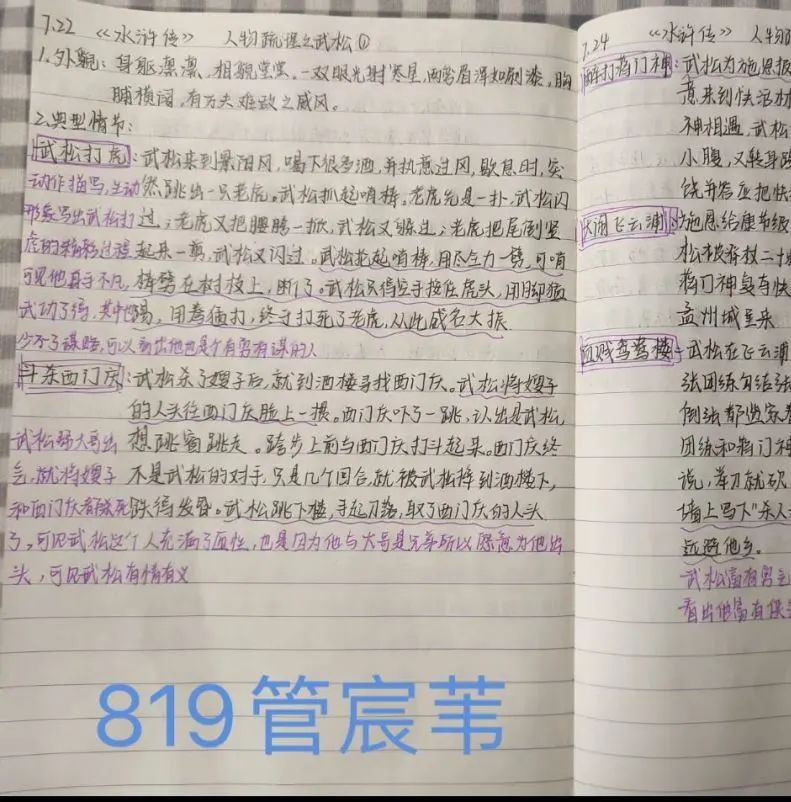 7.22 《水浒传》 人物梳理之武松①
1.外貌：身躯凛凛，相貌堂堂。一双眼光射寒星，两弯眉浑如刷漆，胸
脯横阔，有万夫难敌之威风。
2.典型情节：
武松打虎：武松来到景阳冈，喝下很多酒，并执意过冈，歇息时，突
然跳出一只老虎。武松抓起哨棒。老虎先是一扑，武松闪
过，；老虎又把腰胯一掀，武松又躲过；老虎把尾倒竖
起来一剪，武松又闪过。武松抡起哨棒，用尽全力一劈，可哨
棒劈在树枝上，断了。武松只得空手按住虎头，用脚猛
踢，用拳猛打，终于打死了老虎，从此威名大振
动作描写，生动
形象写出武松打
虎的精彩过程
可见他身手不凡，
武功了得，其中也
少不了谋略，可以看出他也是个有勇有谋的人
斗杀西门庆：武松杀了嫂子后，就到酒楼寻找西门庆。武松将嫂子
的人头往西门庆脸上一掼。西门庆吓了一跳，认出是武松，
想跳窗跳走。跨步上前与西门庆打斗起来。西门庆终
不是武松的对手，只是几个回合，就被武松摔到酒楼下，
跌得发昏。武松跳下楼，手起刀落，取了西门庆的人头
武松替大哥出
气，就将嫂子
和西门庆都杀死
了，可见武松这个人充满了血性，也是因为他与大哥是兄弟所以愿意为他出
头，可见武松有情有义
7.24 《水浒传》 人物
醉打蒋门神：武松为施恩报
意来到快活林
神相遇，武松
小腹，又转身
饶并答应把快
大闹飞云浦：施恩给康节级
松被脊杖二十
蒋门神复夺快
孟州城里来
血溅鸳鸯楼：武松在飞云浦
张团练勾结张
倒张都监家
团练和蒋门神
说，举刀就砍
墙上写下“杀人
远避他乡。
武松富有
看出他富有
819管宸苇